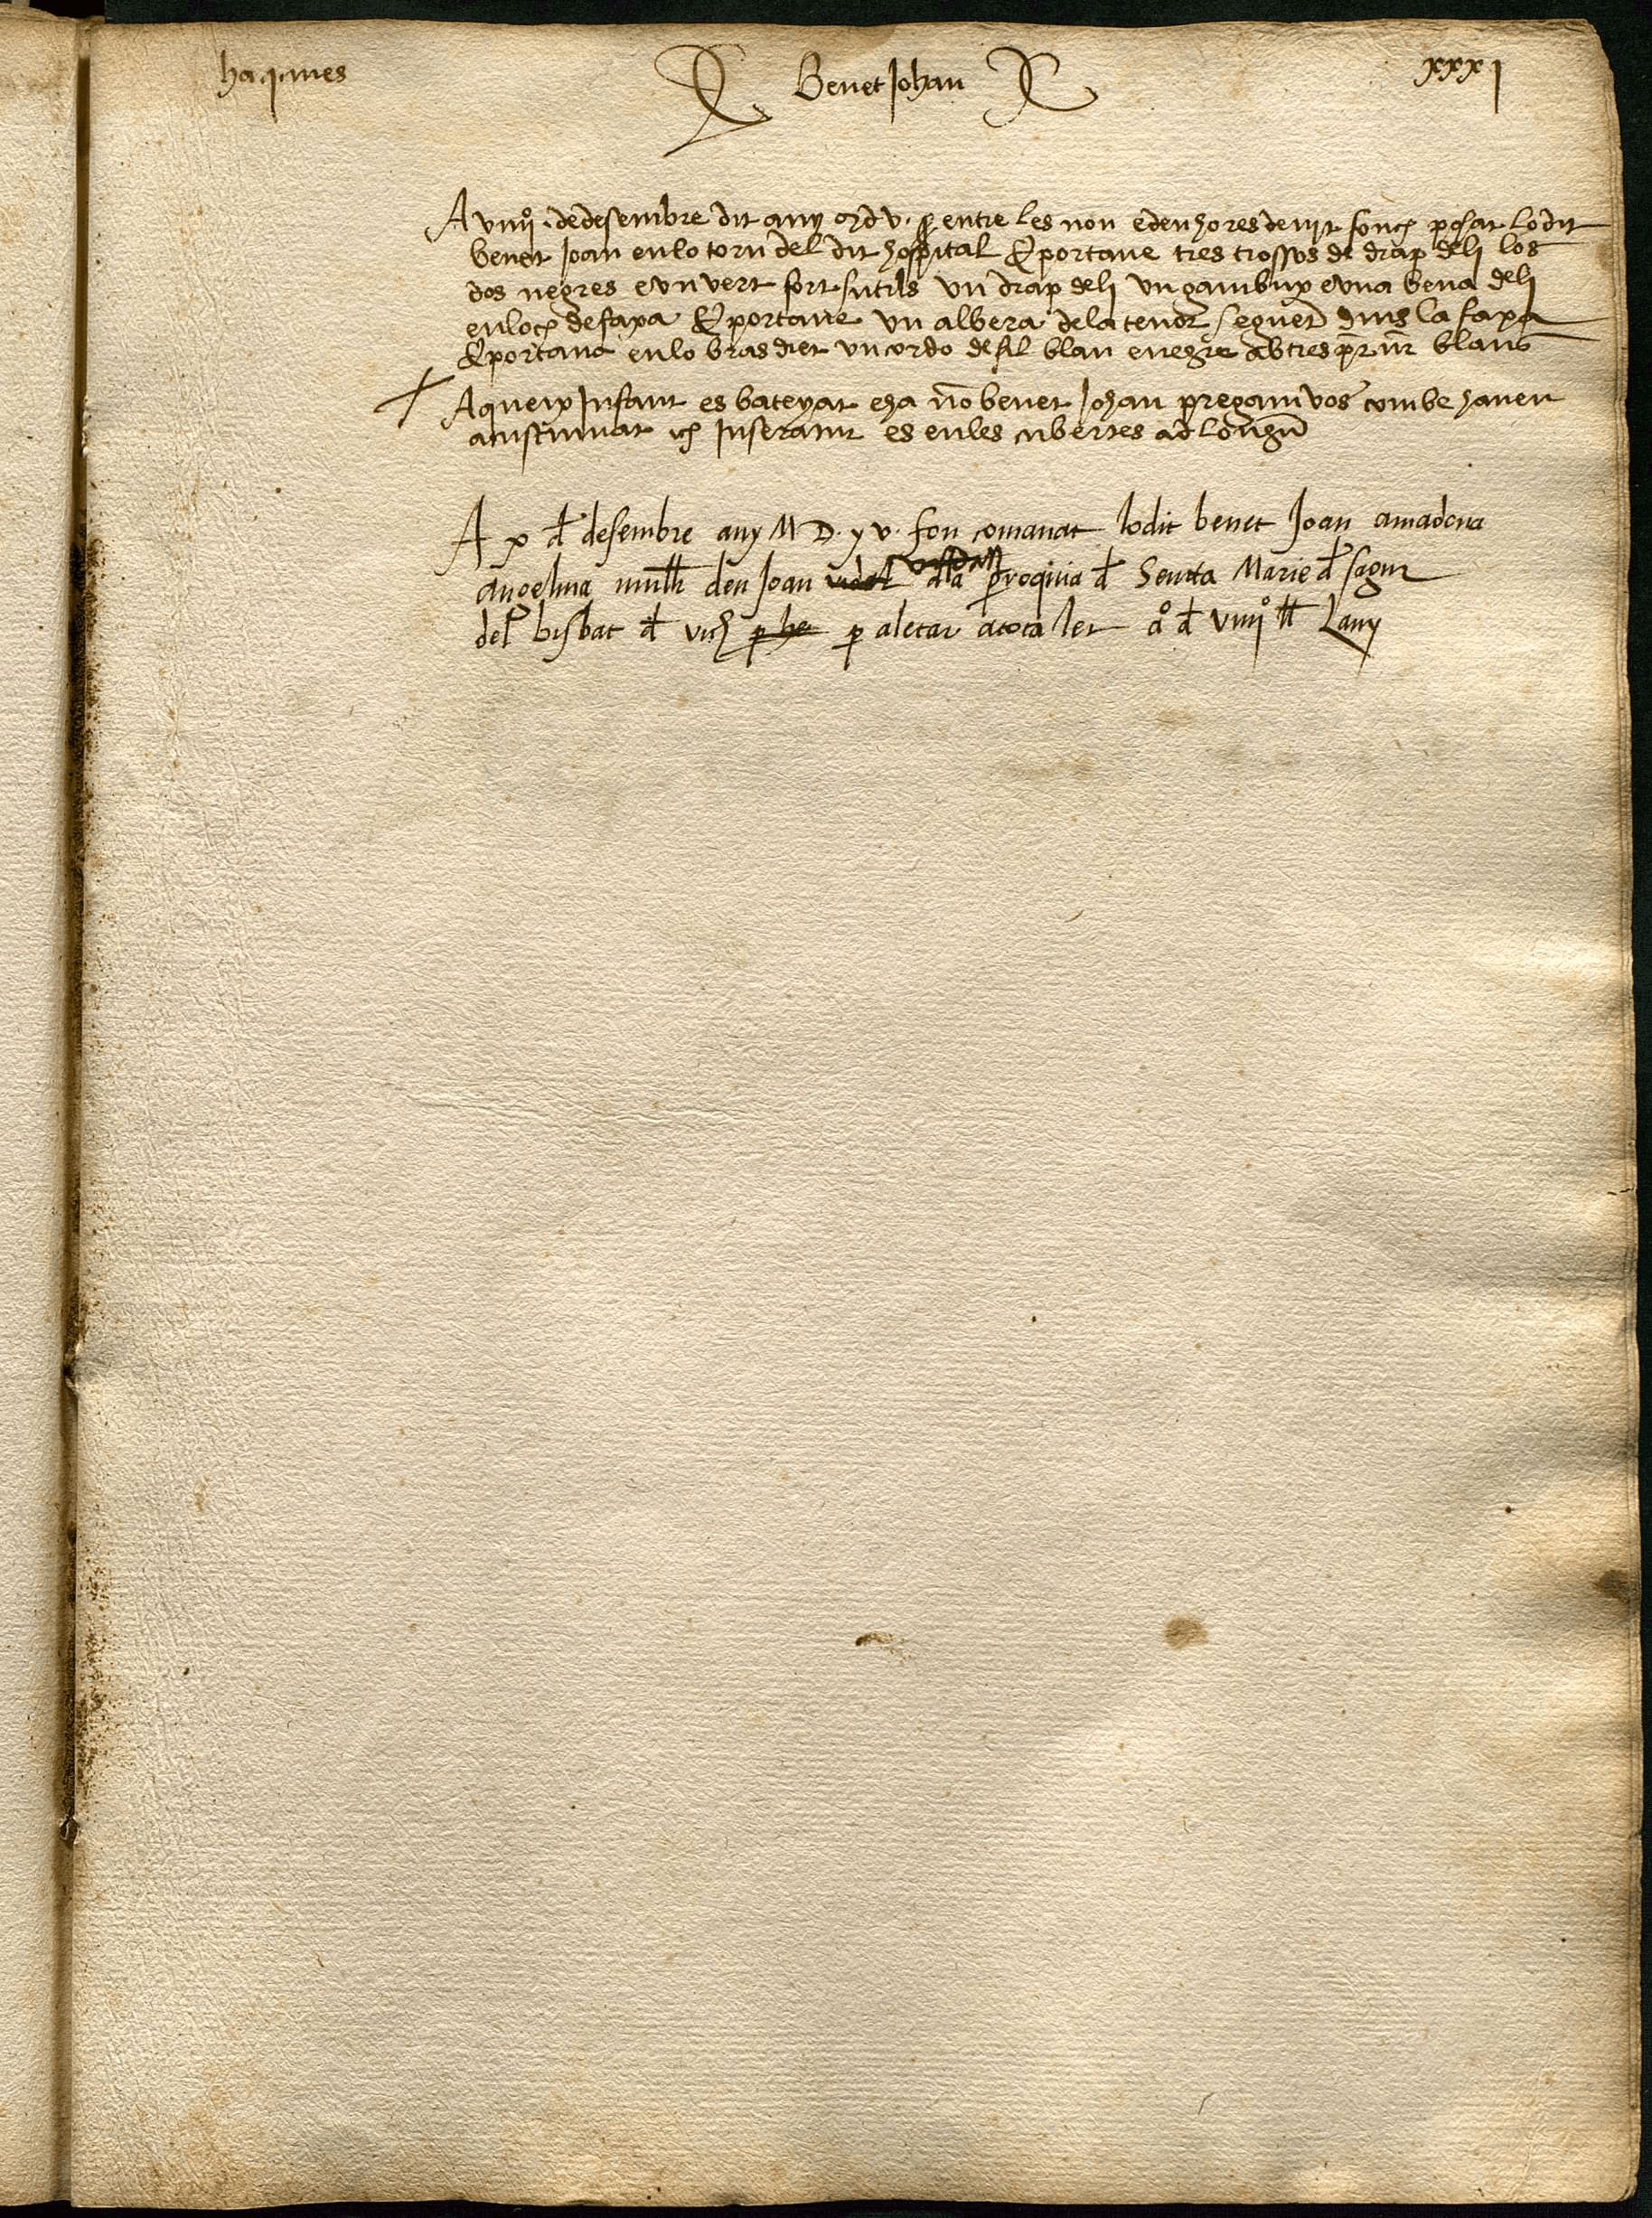 haqimes
Benet Johan
xxxj
A viiijº de desembre dit any MDv. entre les nou e deu hores de nit fonch posat lo dit
benet Joan en lo torn del dit hospital E portave tres trossos de drap de li los
dos negres e vn vert fort sutils vn drap de li vn gambux e vna bena de li
en loch de faxa E portave vn albera de la tenor seguet dins la faxa
E portava en lo bras dret vn cordo de fil blau e negre ab tres blaus
Aqueix Infant es bateyat e ha nõ benet Johan pregam vos com be haueu
acustumat ich Inseratur es en les cubertes ad longũ
A x đ desembre any M D. y v. fon comanat lo dit benet Joan a madona
angelina mullr den Joan vidal dla proquia đ Senta Marie đ sagur
del bisbat đ vich p he p aletar a tota let a º đ viiijº ll Lany